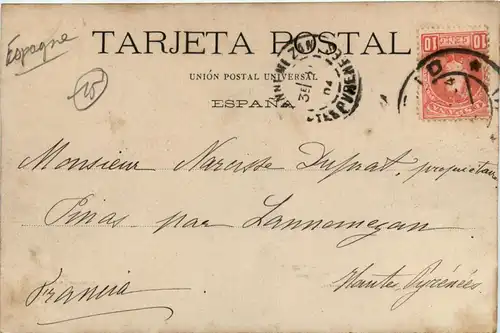 Espagne
TARJETA POSTAL
UNIÓN POSTAL UNIVERSAL
ESPAÑA
15
10 10
Monsieur Narcisse Duprat, propriétaire
Pinas par Lannemezan
Hautes Pyrénées
Francia